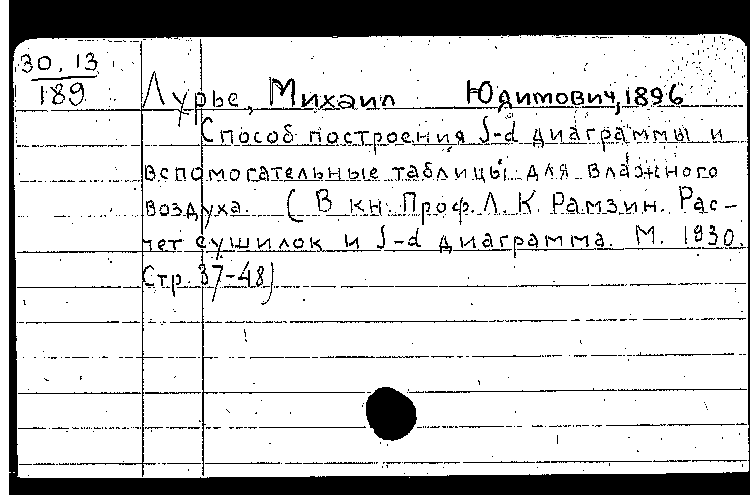 30.13
189
Лурье, Михаил Юдимович, 1896
Способ построения J-d диаграммы и
вспомогательные таблицы для влажного
воздуха. (В кн. Проф. Л. К. Рамзин. Рас-
чет сушилок и J-d диаграмма. М. 1930.
Стр. 37-48)